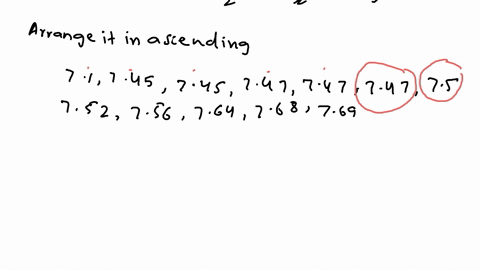 Arrange it in ascending
7.1, 7.45, 7.45, 7.47, 7.47, 7.47, 7.5
7.52, 7.56, 7.64, 7.68, 7.69